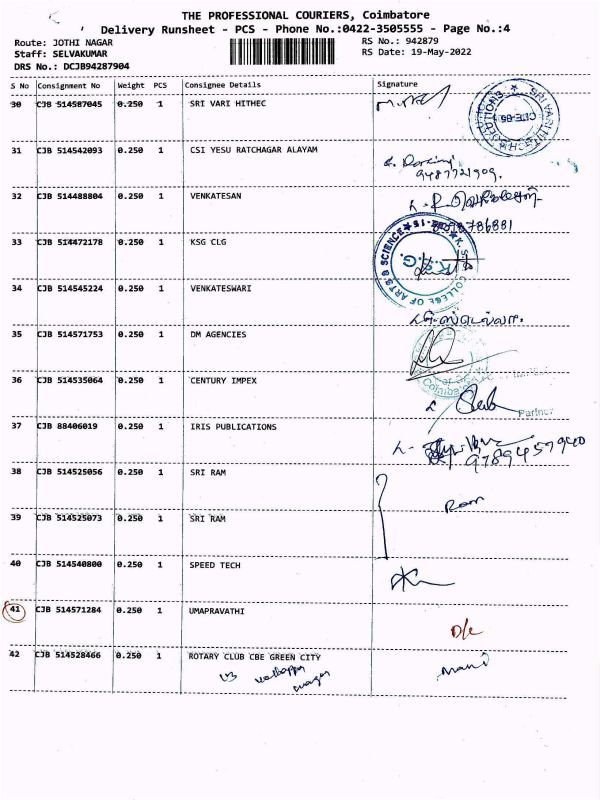 THE PROFESSIONAL COURIERS, Coimbatore
Delivery Runsheet - PCS - Phone No.:0422-3505555 - Page No.:4
Route: JOTHI NAGAR RS No.: 942879
Staff: SELVAKUMAR RS Date: 19-May-2022
DRS No.: DCJB94287904
S No Consignment No Weight PCS Consignee Details Signature
30 CJB 514587045 0.250 1 SRI VARI HITHEC
31 CJB 514542093 0.250 1 CSI YESU RATCHAGAR ALAYAM
9487721909.
32 CJB 514488804 0.250 1 VENKATESAN
786881
33 CJB 514472178 0.250 1 KSG CLG
COLLEGE OF ARTS & SCIENCE
K.S.G.
34 CJB 514545224 0.250 1 VENKATESWARI
35 CJB 514571753 0.250 1 DM AGENCIES
36 CJB 514535064 0.250 1 CENTURY IMPEX
Partner
37 CJB 88406019 0.250 1 IRIS PUBLICATIONS
9789457940
38 CJB 514525056 0.250 1 SRI RAM
Ram
39 CJB 514525073 0.250 1 SRI RAM
40 CJB 514540800 0.250 1 SPEED TECH
41 CJB 514571284 0.250 1 UMAPRAVATHI
D/c
42 CJB 514528466 0.250 1 ROTARY CLUB CBE GREEN CITY
Mani